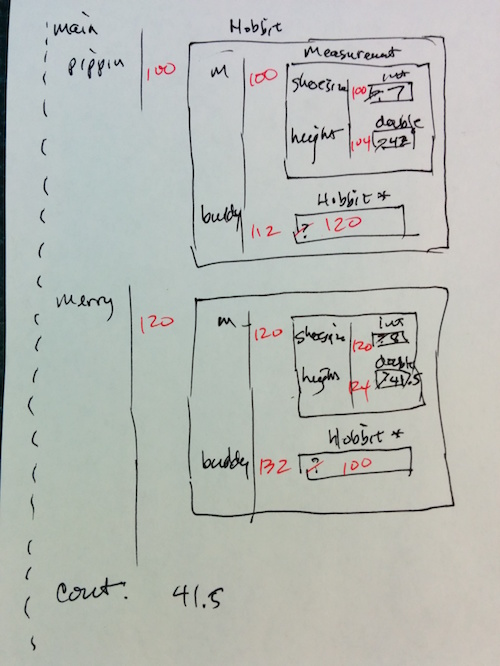 main
Hobbit
pippin 100
m 100
Measurement
shoesize 100 int ? 7
height 104 double
buddy 112 Hobbit * ? 120
merry 120
m 120
shoesize 120 int ? 8
height 124 double ? 41.5
buddy 132 Hobbit * ? 100
cout: 41.5